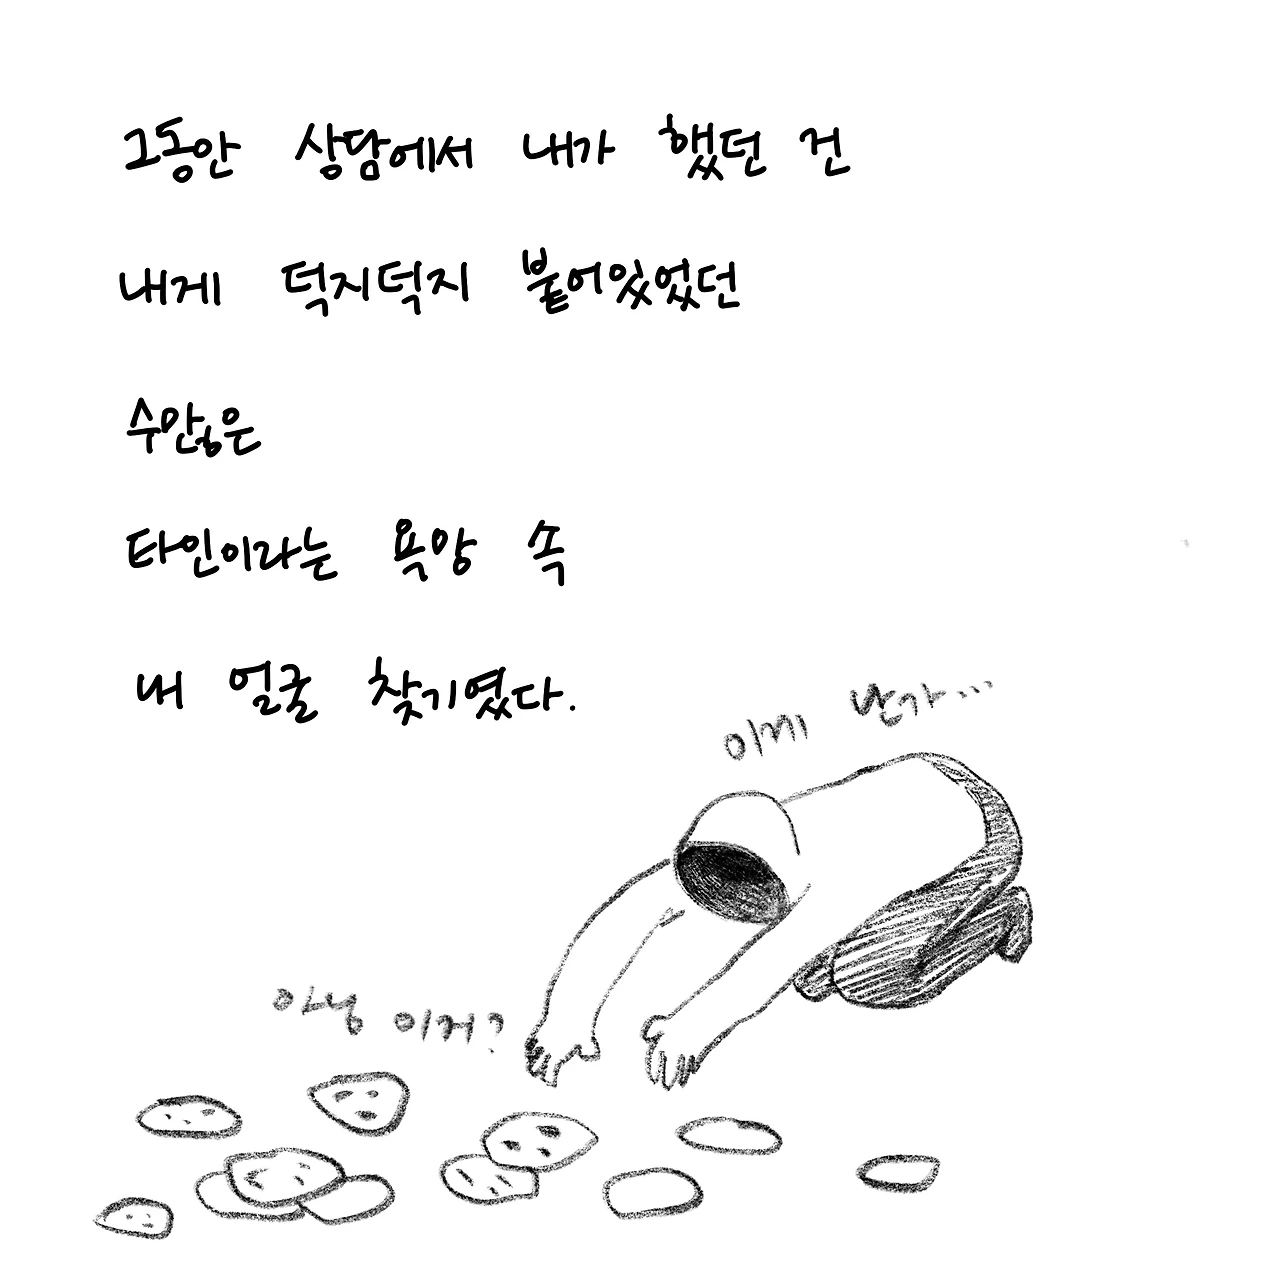 그동안 상담에서 내가 했던 건
내게 덕지덕지 붙어있었던
수많은
타인이라는 욕망 속
내 얼굴 찾기였다.
이게 난가...
아님 이거?